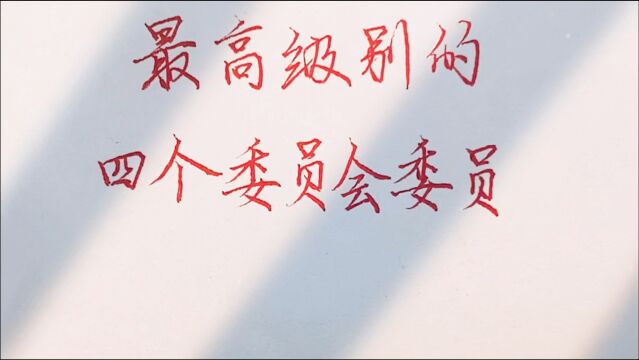 最高级别的
四个委员会委员